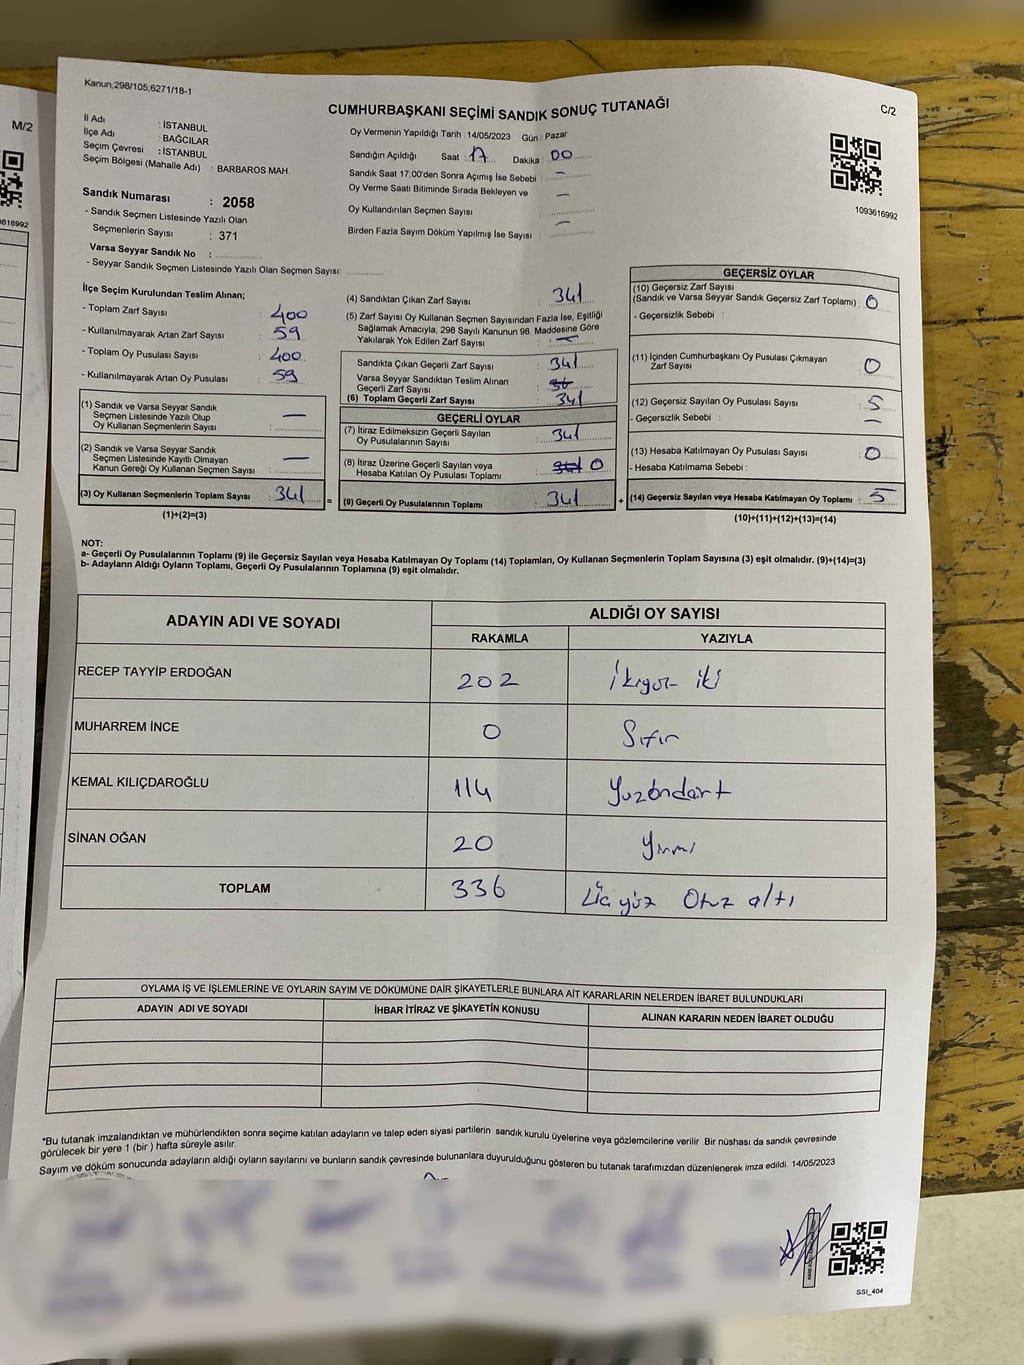 Kanun,298/105,6271/18-1
CUMHURBAŞKANI SEÇİMİ SANDIK SONUÇ TUTANAĞI
C/2
M/2
İl Adı : İSTANBUL
İlçe Adı : BAĞCILAR
Seçim Çevresi : İSTANBUL
Seçim Bölgesi (Mahalle Adı) : BARBAROS MAH.
Oy Vermenin Yapıldığı Tarih :14/05/2023 Gün : Pazar
Sandığın Açıldığı Saat : 17 Dakika : 00
Sandık Saat 17.00'den Sonra Açımış İse Sebebi : —
Oy Verme Saati Bitiminde Sırada Bekleyen ve —
Oy Kullandırılan Seçmen Sayısı :
Birden Fazla Sayım Döküm Yapılmış İse Sayısı : —
1093616992
616992
Sandık Numarası : 2058
- Sandık Seçmen Listesinde Yazılı Olan
Seçmenlerin Sayısı : 371
Varsa Seyyar Sandık No :
- Seyyar Sandık Seçmen Listesinde Yazılı Olan Seçmen Sayısı:
İlçe Seçim Kurulundan Teslim Alınan;
- Toplam Zarf Sayısı : 400
- Kullanılmayarak Artan Zarf Sayısı : 59
- Toplam Oy Pusulası Sayısı : 400
- Kullanılmayarak Artan Oy Pusulası : 59
(1) Sandık ve Varsa Seyyar Sandık
Seçmen Listesinde Yazılı Olup
Oy Kullanan Seçmenlerin Sayısı : —
(2) Sandık ve Varsa Seyyar Sandık
Seçmen Listesinde Kayıtlı Olmayan
Kanun Gereği Oy Kullanan Seçmen Sayısı : —
(3) Oy Kullanan Seçmenlerin Toplam Sayısı : 341
(1)+(2)=(3)
=
(4) Sandıktan Çıkan Zarf Sayısı : 341
(5) Zarf Sayısı Oy Kullanan Seçmen Sayısından Fazla İse, Eşitliği
Sağlamak Amacıyla, 298 Sayılı Kanunun 98. Maddesine Göre
Yakılarak Yok Edilen Zarf Sayısı : —
Sandıkta Çıkan Geçerli Zarf Sayısı : 341
Varsa Seyyar Sandıktan Teslim Alınan
Geçerli Zarf Sayısı
(6) Toplam Geçerli Zarf Sayısı : 341
GEÇERLİ OYLAR
(7) İtiraz Edilmeksizin Geçerli Sayılan
Oy Pusulalarının Sayısı : 341
(8) İtiraz Üzerine Geçerli Sayılan veya
Hesaba Katılan Oy Pusulası Toplamı : 341 0
(9) Geçerli Oy Pusulalarının Toplamı : 341
+
GEÇERSİZ OYLAR
(10) Geçersiz Zarf Sayısı
(Sandık ve Varsa Seyyar Sandık Geçersiz Zarf Toplamı) : 0
- Geçersizlik Sebebi :
(11) İçinden Cumhurbaşkanı Oy Pusulası Çıkmayan
Zarf Sayısı : 0
(12) Geçersiz Sayılan Oy Pusulası Sayısı : 5
- Geçersizlik Sebebi : —
(13) Hesaba Katılmayan Oy Pusulası Sayısı : 0
- Hesaba Katılmama Sebebi :
(14) Geçersiz Sayılan veya Hesaba Katılmayan Oy Toplamı : 5
(10)+(11)+(12)+(13)=(14)
NOT:
a- Geçerli Oy Pusulalarının Toplamı (9) ile Geçersiz Sayılan veya Hesaba Katılmayan Oy Toplamı (14) Toplamları, Oy Kullanan Seçmenlerin Toplam Sayısına (3) eşit olmalıdır. (9)+(14)=(3)
b- Adayların Aldığı Oyların Toplamı, Geçerli Oy Pusulalarının Toplamına (9) eşit olmalıdır.
ADAYIN ADI VE SOYADI ALDIĞI OY SAYISI
RAKAMLA YAZIYLA
RECEP TAYYİP ERDOĞAN 202 İkiyüz iki
MUHARREM İNCE 0 Sıfır
KEMAL KILIÇDAROĞLU 114 Yüzondört
SİNAN OĞAN 20 Yirmi
TOPLAM 336 Üçyüz Otuz altı
OYLAMA İŞ VE İŞLEMLERİNE VE OYLARIN SAYIM VE DÖKÜMÜNE DAİR ŞİKAYETLERLE BUNLARA AİT KARARLARIN NELERDEN İBARET BULUNDUKLARI
ADAYIN ADI VE SOYADI İHBAR İTİRAZ VE ŞİKAYETİN KONUSU ALINAN KARARIN NEDEN İBARET OLDUĞU
*Bu tutanak imzalandıktan ve mühürlendikten sonra seçime katılan adayların ve talep eden siyasi partilerin sandık kurulu üyelerine veya gözlemcilerine verilir .Bir nüshası da sandık çevresinde
görülecek bir yere 1 (bir ) hafta süreyle asılır.
Sayım ve döküm sonucunda adayların aldığı oyların sayılarını ve bunların sandık çevresinde bulunanlara duyurulduğunu gösteren bu tutanak tarafımızdan düzenlenerek imza edildi. 14/05/2023
SSI_404